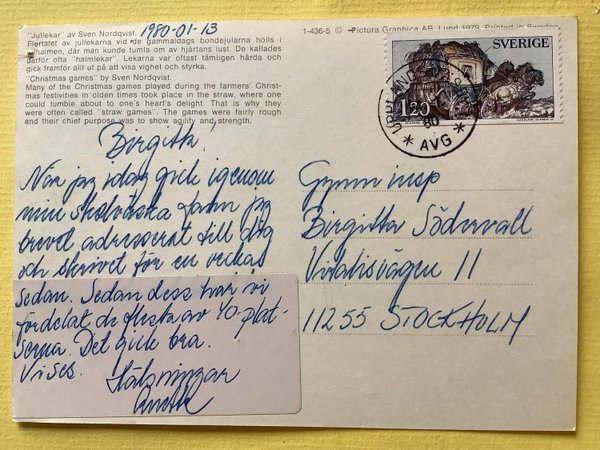 1980-01-13
1-436-5 © Pictura Graphica AB, Lund 1979. Printed in Sweden
"Jullekar" av Sven Nordqvist.
Flertalet av jullekarna vid de gammaldags bondejularna hölls i
halmen, där man kunde tumla om av hjärtans lust. De kallades
därför ofta "halmlekar". Lekarna var oftast tämligen hårda och
gick framför allt ut på att visa vighet och styrka.
"Christmas games" by Sven Nordqvist.
Many of the Christmas games played during the farmers' Christ-
mas festivities in olden times took place in the straw, where one
could tumble about to one's heart's delight. That is why they
were often called "straw games". The games were fairly rough
and their chief purpose was to show agility and strength.
SVERIGE
1.20
80
* AVG *
Birgitta.
När jag idag gick igenom
min skolväska fann jag
brevet adresserat till dig
och skrivet för en veckas
sedan. Sedan dess har vi
fördelat de flesta av 40-plat-
serna. Det gick bra.
Vi ses.
Hälsningar
Gymn insp
Birgitta Södervall
Vitalisvägen 11
11255 STOCKHOLM